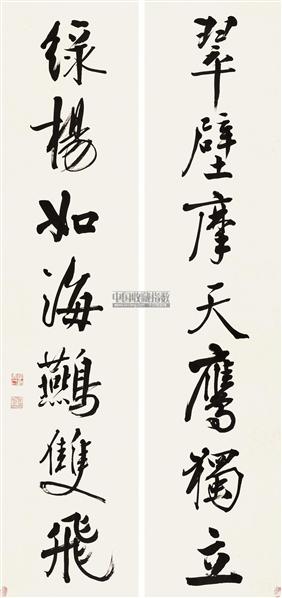 翠壁摩天鷹獨立
綠楊如海鷰雙飛
中国收藏指数